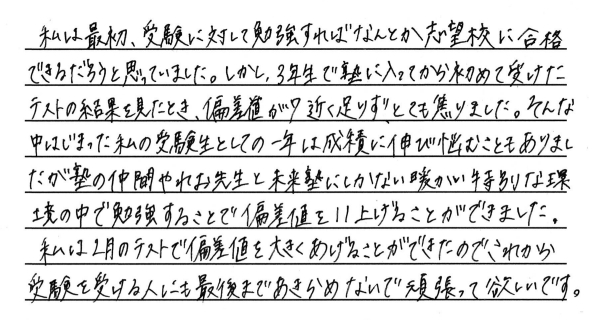 私は最初、受験に対して勉強すればなんとか志望校に合格
できるだろうと思っていました。しかし、3年生で塾に入ってから初めて受けた
テストの結果を見たとき、偏差値が7近く足りずとても焦りました。そんな
中はじまった私の受験生としての一年は成績に伸び悩むこともありまし
たが塾の仲間やれお先生と未来塾にしかない暖かい特別な環
境の中で勉強することで偏差値を11上げることができました。
私は1月のテストで偏差値を大きくあげることができたのでこれから
受験を受ける人にも最後まであきらめないで頑張って欲しいです。